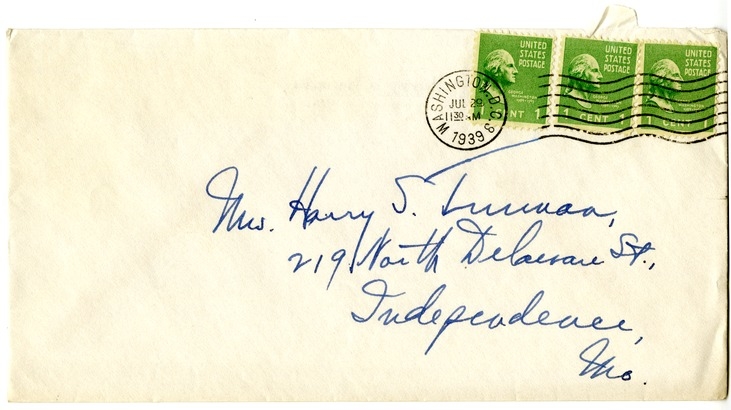 UNITED STATES POSTAGE
UNITED STATES POSTAGE
UNITED STATES POSTAGE
GEORGE WASHINGTON
GEORGE WASHINGTON
GEORGE WASHINGTON
1 CENT 1
1 CENT 1
1 CENT 1
WASHINGTON, D.C.
JUL 29
1130 AM
1939
Mrs. Harry S. Truman,
219 North Delaware St.,
Independence,
Mo.